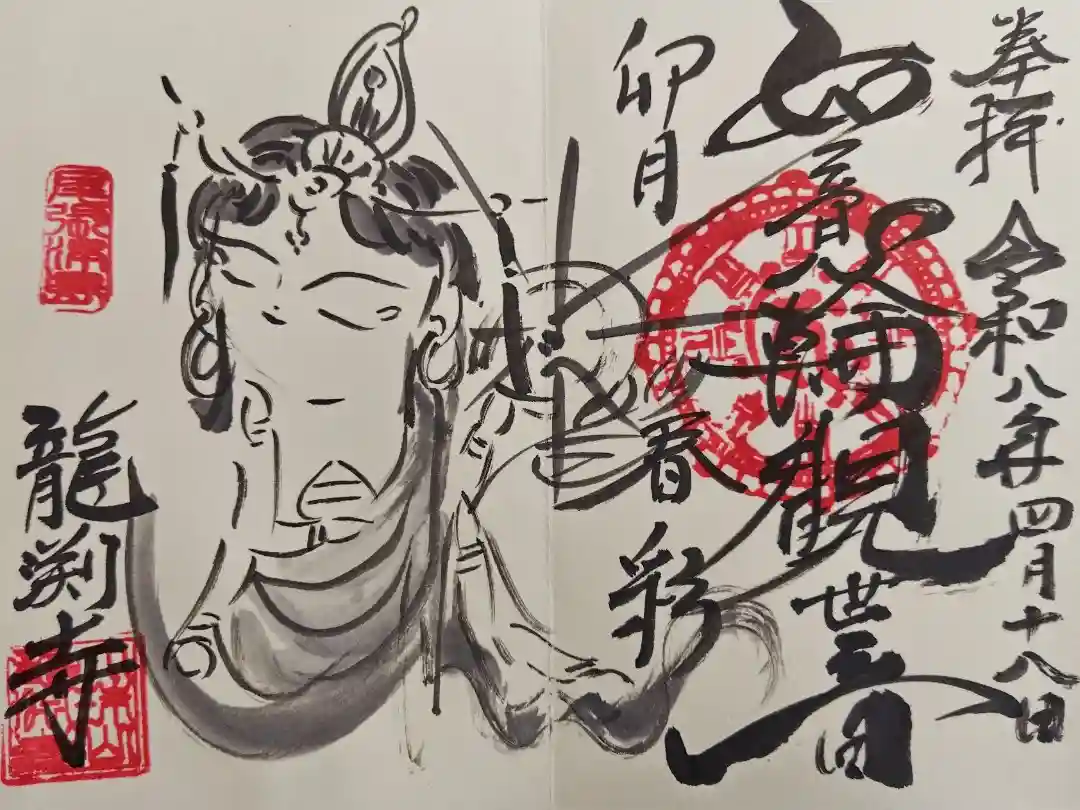 奉拝
令和八年四月十八日
如意輪觀世音
卯月
春彩
龍渕寺